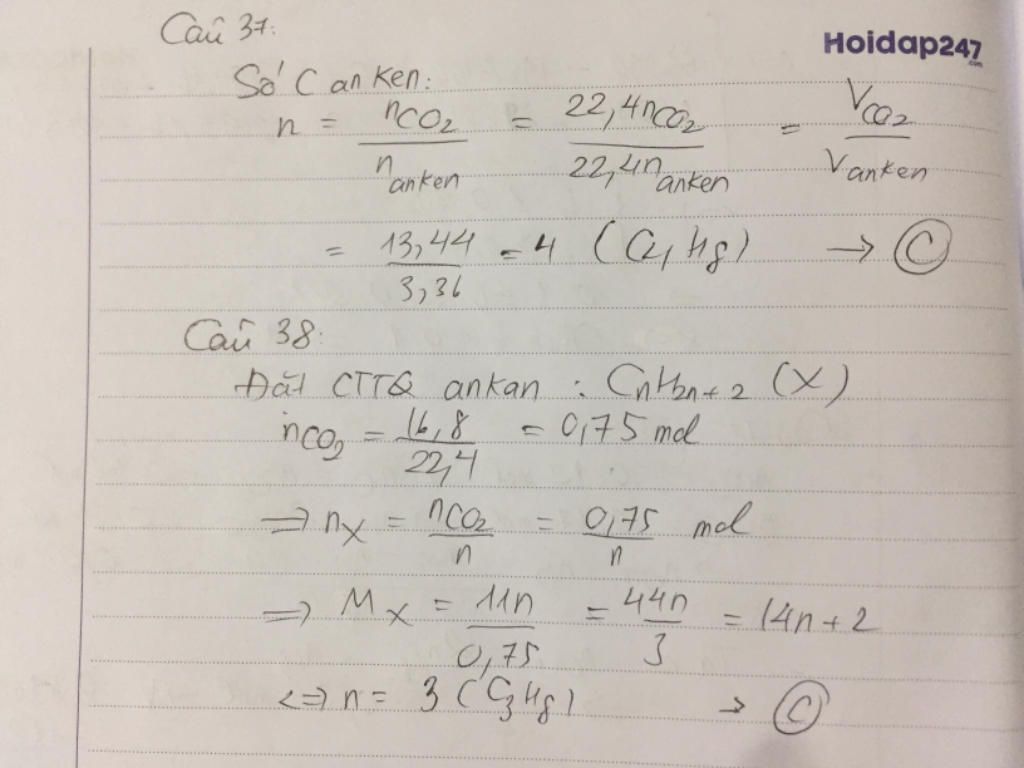 Câu 37:
Hoidap247
.com
Số C anken:
n = nCO2 / nanken = 22,4nCO2 / 22,4nanken = VCO2 / Vanken
= 13,44 / 3,36 = 4 (C4H8) → C
Câu 38:
Đặt CTTQ ankan : CnH2n+2 (X)
nCO2 = 16,8 / 22,4 = 0,75 mol
⇒ nX = nCO2 / n = 0,75 / n mol
⇒ MX = 11n / 0,75 = 44n / 3 = 14n + 2
⇔ n = 3 (C3H8) → C